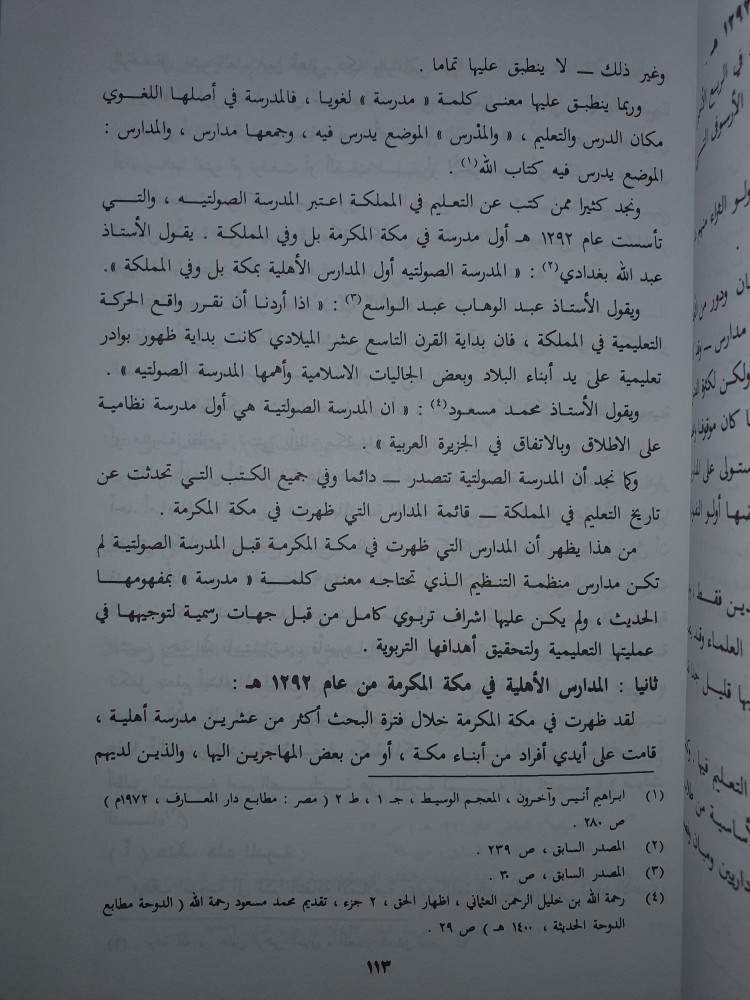 وغير ذلك — لا ينطبق عليها تماما .
وربما ينطبق عليها معنى كلمة « مدرسة » لغويا ، فالمدرسة في أصلها اللغوي
مكان الدرس والتعليم ، « والمدْرس » الموضع يدرس فيه ، وجمعها مدارس ، والمدارس :
الموضع يدرس فيه كتاب الله(١) .
ونجد كثيرا ممن كتب عن التعليم في المملكة اعتبر المدرسة الصولتيه ، والتي
تأسست عام ١٢٩٢ هـ أول مدرسة في مكة المكرمة بل وفي المملكة . يقول الأستاذ
عبد الله بغدادي(٢) : « المدرسة الصولتيه أول المدارس الأهلية بمكة بل وفي المملكة ».
ويقول الأستاذ عبد الوهاب عبد الواسع(٣) : « اذا أردنا أن نقرر واقع الحركة
التعليمية في المملكة ، فان بداية القرن التاسع عشر الميلادي كانت بداية ظهور بوادر
تعليمية على يد أبناء البلاد وبعض الجاليات الاسلامية وأهمها المدرسة الصولتيه » .
ويقول الأستاذ محمد مسعود(٤) : « ان المدرسة الصولتية هي أول مدرسة نظامية
على الاطلاق وبالاتفاق في الجزيرة العربية » .
وكما نجد أن المدرسة الصولتية تتصدر — دائما وفي جميع الكتب التي تحدثت عن
تاريخ التعليم في المملكة — قائمة المدارس التي ظهرت في مكة المكرمة .
من هذا يظهر أن المدارس التي ظهرت في مكة المكرمة قبل المدرسة الصولتية لم
تكن مدارس منظمة التنظيم الذي تحتاجه معنى كلمة « مدرسة » بمفهومها
الحديث ، ولم يكن عليها اشراف تربوي كامل من قبل جهات رسمية لتوجيهها في
عمليتها التعليمية ولتحقيق أهدافها التربوية .
ثانيا : المدارس الأهلية في مكة المكرمة من عام ١٢٩٢ هـ :
لقد ظهرت في مكة المكرمة خلال فترة البحث أكثر من عشرين مدرسة أهلية ،
قامت على أيدي أفراد من أبناء مكة ، أو من بعض المهاجرين اليها ، والذين لديهم
(١) ابراهيم أنيس وآخرون ، المعجم الوسيط ، جـ ١ ، ط ٢ ( مصر : مطابع دار المعارف ، ١٩٧٢م )
ص ٢٨٠ .
(٢) المصدر السابق ، ص ٢٣٩ .
(٣) المصدر السابق ، ص ٣٠ .
(٤) رحمة الله بن خليل الرحمن العثماني ، اظهار الحق ، ٢ جزء ، تقديم محمد مسعود رحمة الله ( الدوحة مطابع
الدوحة الحديثة ، ١٤٠٠ هـ ) ص ٢٩ .
١١٣